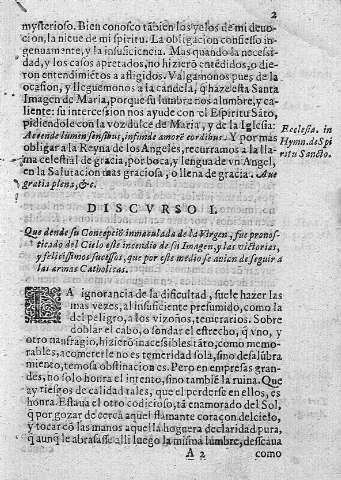 2
mysterioso. Bien conosco tãbien los yelos de mi deuo-
cion, la nieue de mi spiritu. La obligacion confiesso in-
genuamente, y la insuficiencia. Mas quando la necesi-
dad, y los casos apretados, no hizierõ entẽdidos, o die-
ron entendimiẽtos a afligidos. Valgamonos pues de la
ocasion, y lleguemonos a la candela, q̃ haze esta Santa
Imagen de Maria, porque su lumbre nos alumbre, y ca-
liente: su intercession nos ayude con el Espiritu Sãto,
pidiendole con la voz dulce de Maria, y de la Iglesia:
Accende lumen sensibus, infunde amorẽ cordibus. Y por mas
obligar a la Reyna de los Angeles, recurramos a la lla-
ma celestial de gracia, por boca, y lengua de vn Angel,
en la Salutacion mas graciosa, o llena de gracia. Aue
gratia plena, &c.
Ecclesia. in
Hymn. de Spi
ritu Sancto.
DISCVRSO I.
Que dende su Concepciõ inmaculada de la Virgen, fue pronos-
ticado del Cielo este incendio de su Imagen, y las victorias,
y felicissimos sucessos, que por este medio se auian de seguir a
las armas Catholicas.
LA ignorancia de la dificultad, suele hazer las
mas vezes, al insuficiente presumido, como la
del peligro, a los vizoños, temerarios. Sobre
doblar el cabo, o sondar el estrecho, q̃ vno, y
otro naufragio, hizierõ inacessibles tãto, como memo-
rables, acometerle no es temeridad sola, sino desalũbra
miento, temosa obstinacion es. Pero en empresas gran-
des, no solo honra el intento, sino tambiẽ la ruina. Que
ay riesgos de calidad tales, que el perderse en ellos, es
honra. Estaua el otro codicioso, tã enamorado del Sol,
q̃ por gozar de cerca aquel flamante coraçon del cielo,
y tocar cõ las manos aquella hoguera de claridad pura,
q̃ aunq̃ le abrasasse alli luego la misma lumbre, desseaua
A 2
como